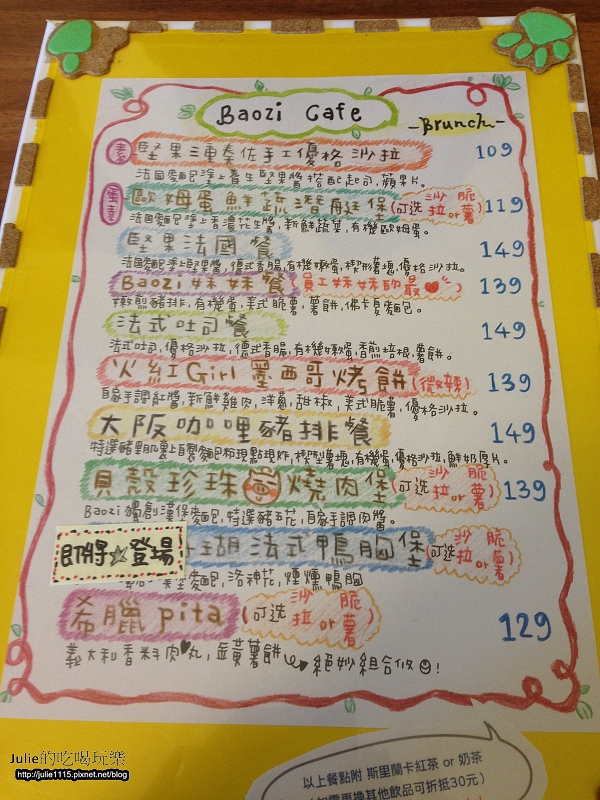 Baozi Cafe
-Brunch-
素 堅果三重奏佐手工優格沙拉 109
法國麵包塗上養生堅果醬搭配起司,蘋果片。
蛋素 歐姆蛋鮮蔬潛艇堡(可选 沙拉 or 脆薯) 119
法國麵包塗上香濃花生醬,新鮮蔬菜,有機歐姆蛋。
堅果法國餐 149
法國麵包塗上堅果醬,德式香腸,有機嫩蛋,楔型薯塊,優格沙拉。
Baozi妹妹餐(員工妹妹的最❤) 139
嫩煎豬排,有機蛋,美式脆薯,薯餅,佛卡夏麵包。
法式吐司餐 149
法式吐司,優格沙拉,德式香腸,有機嫩蛋,香煎培根,薯餅。
火紅Girl墨西哥烤餅(微辣) 139
自家手調紅醬,新鮮雞肉,洋蔥,甜椒,美式脆薯,優格沙拉。
大阪咖哩豬排餐 149
特選豬里肌裹上自製麵包粉現點現炸,楔型薯塊,有機蛋,優格沙拉,鮮奶厚片。
貝殼珍珠燒肉堡(可选 沙拉 or 脆薯) 139
Baozi獨創漢保麵包,特選豬五花,自家手調肉醬。
即將☆登場
瑚法式鴨胸堡(可选 沙拉 or 脆薯)
麵包,洛神花,煙燻鴨胸
希臘pita(可选 沙拉 or 脆薯) 129
義大利香料肉丸,薑黃薯餅 絕妙組合似!
以上餐點附 斯里蘭卡紅茶 or 奶茶
(如需更換其他飲品可折抵30元)
Julie的吃喝玩樂
http://julie1115.pixnet.net/blog